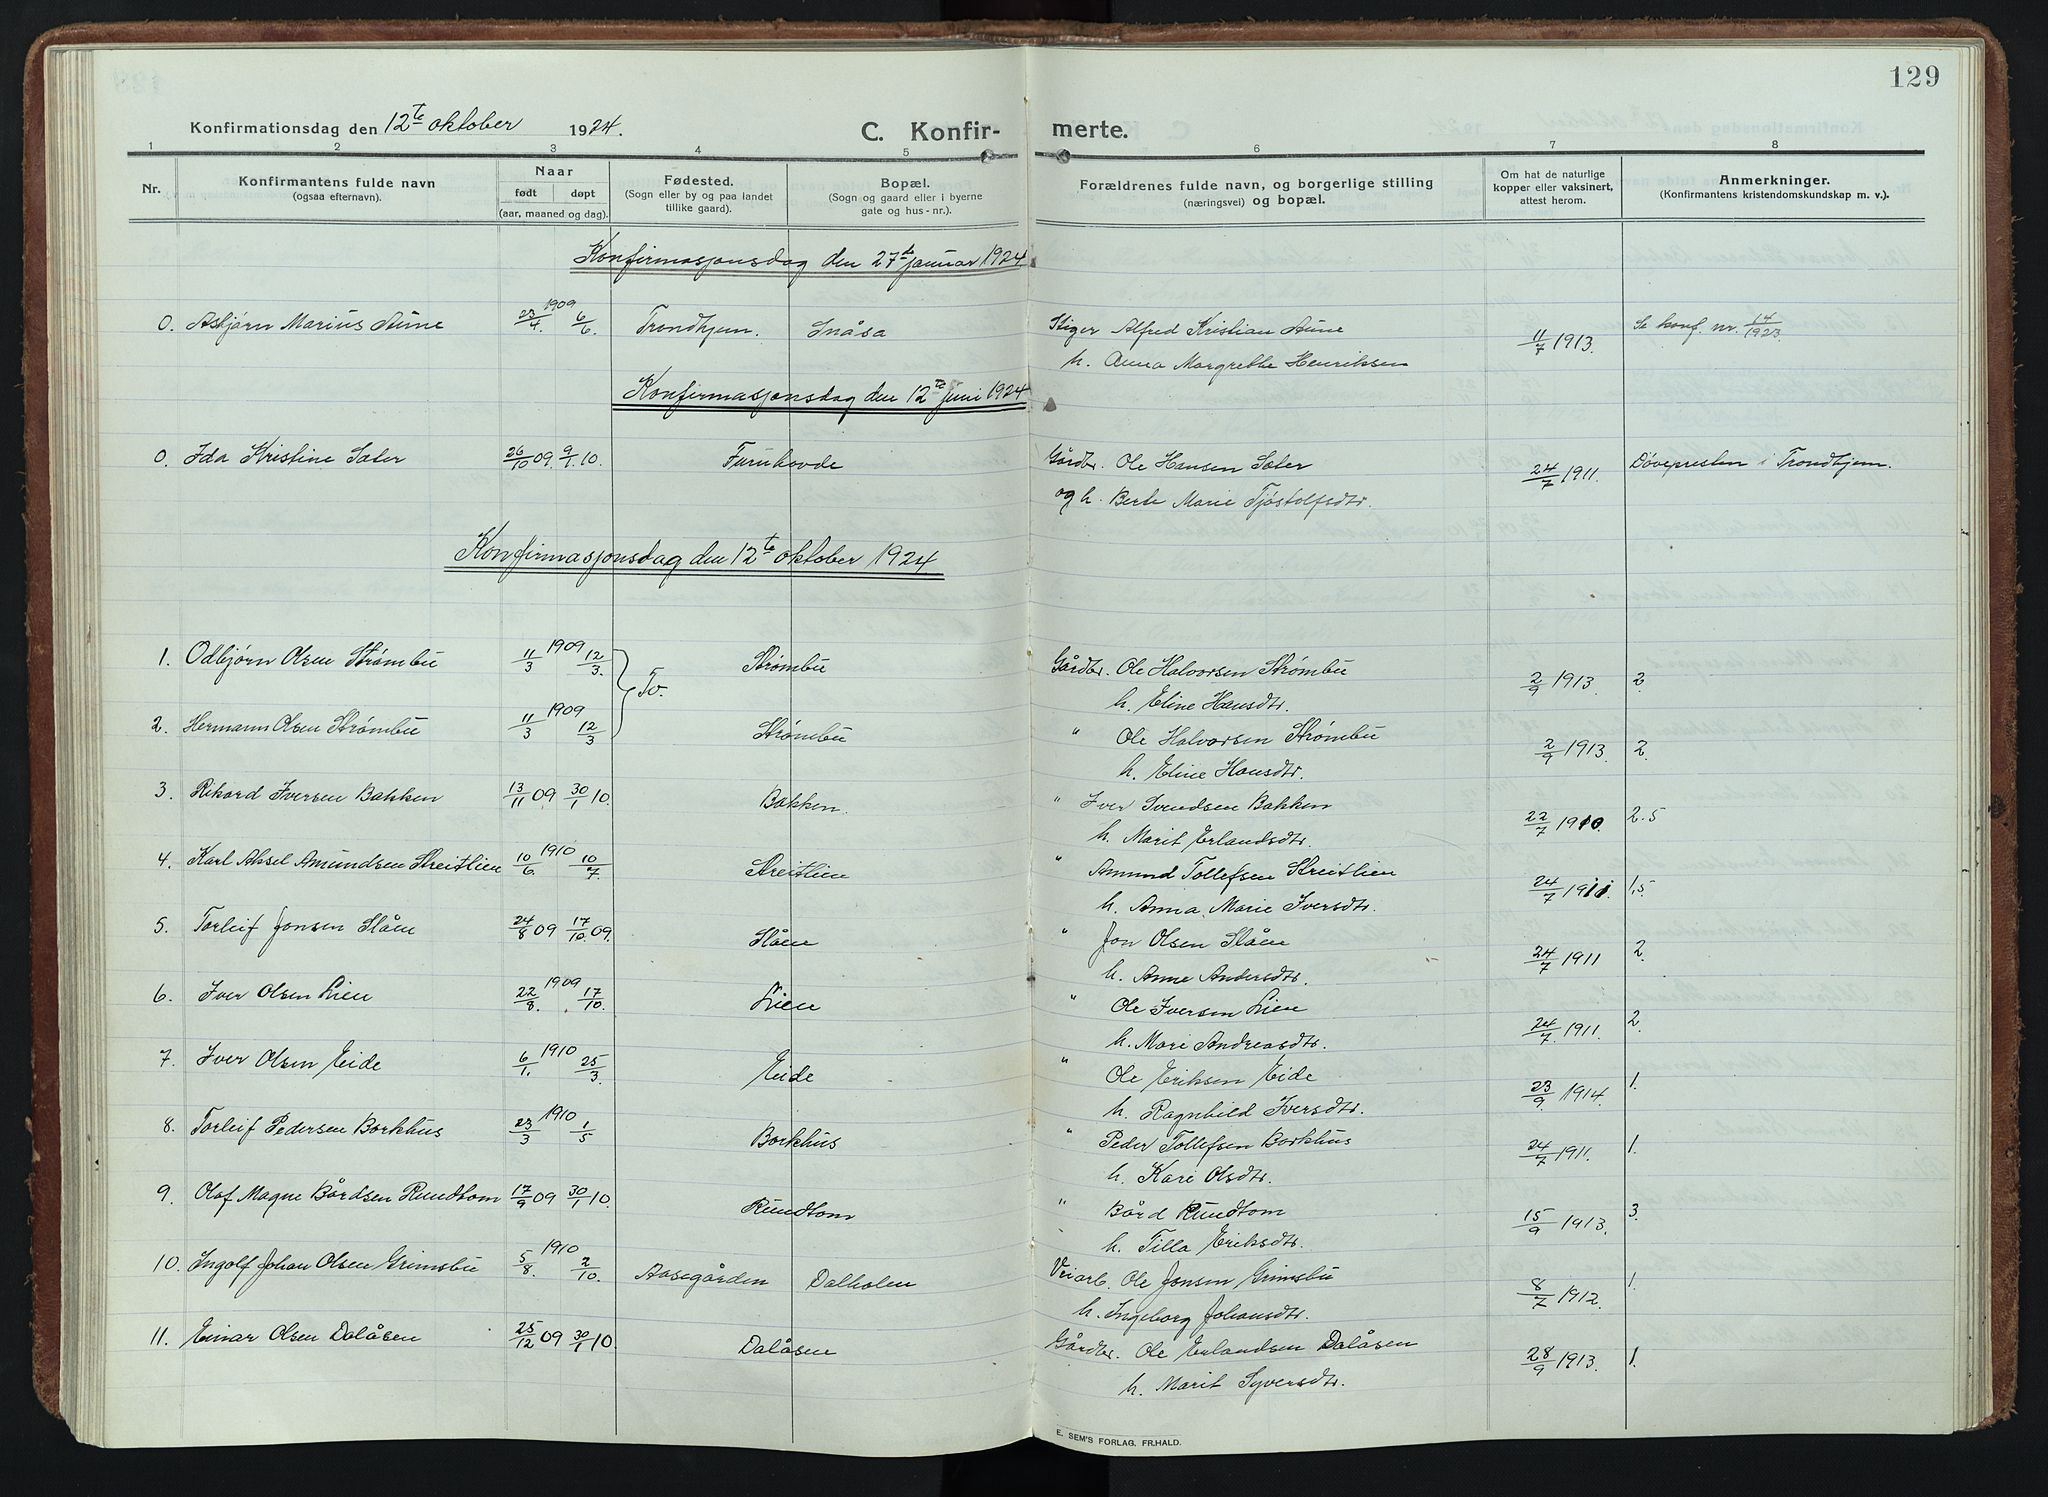 129
Konfirmationsdag den 12te oktober 1924. C. Konfir- merte.
1 2 3 4 5 6 7 8
Nr. Konfirmantens fulde navn (ogsaa efternavn). Naar født døpt (aar, maaned og dag). Fødested. (Sogn eller by og paa landet tillike gaard). Bopæl. (Sogn og gaard eller i byerne gate og hus-nr.). Forældrenes fulde navn, og borgerlige stilling (næringsvei) og bopæl. Om hat de naturlige kopper eller vaksinert, attest herom. Anmerkninger. (Konfirmantens kristendomskundskap m. v.).
Konfirmasjonsdag den 27te januar 1924
0. Asbjørn Marius Aune 23/4 1909 6/6. Trondhjem. Snåsa Stiger Alfred Kristian Aune 11/7 1913. Se konf. nr. 14/1923.
h. Anna Margrethe Henriksen
Konfirmasjonsdag den 12te juni 1924
0. Ida Kristine Sater 26/10 09. 9/1. 10. Furuhovde Gårdbr. Ole Hansen Sater 24/7 1911. Døvepresten i Trondhjem.
og h. Berte Marie Tjøstolfsdtr.
Konfirmasjonsdag den 12te oktober 1924
1. Odbjørn Olsen Strømbu 11/3 1909 12/3. Tv. Strømbu Gårdbr. Ole Halvorsen Strømbu 2/9 1913. 2.
h. Eline Hansdtr.
2. Hermann Olsen Strømbu 11/3 1909 12/3 Strømbu " Ole Halvorsen Strømbu 2/9 1913. 2.
h. Eline Hansdtr.
3. Rikard Iversen Bakken 13/11 09 30/1 10. Bakken. " Iver Svendsen Bakken 22/7 1910. 2.5
h. Marit Erlandsdtr.
4. Karl Aksel Amundsen Streitlien 10/6 1910 10/7. Streitlien " Amund Tollefsen Streitlien 24/7 1911. 1,5
h. Anna Marie Iversdtr.
5. Torleif Jonsen Slåen 24/8 09 17/10. 09. Slåen " Jon Olsen Slåen 24/7 1911 2.
h. Anne Andersdtr.
6. Iver Olsen Lien 22/8. 1909 17/10. Lien " Ole Iversen Lien 24/7. 1911. 2.
h. Mari Andreasdtr.
7. Iver Olsen Eide 6/1. 1910 25/3 Eide " Ole Eriksen Eide 23/9. 1914. 1.
h. Ragnhild Iversdtr.
8. Torleif Pedersen Borkhus 23/3 1910 1/5 Borkhus " Peder Tollefsen Borkhus 24/7 1911. 1.
h. Kari Olsdtr.
9. Olaf Magne Bårdsen Rundtom 17/9 09 30/1 10. Rundtom " Bård Rundtom 15/9 1913. 3.
h. Tilla Eriksdtr.
10. Ingolf Johan Olsen Grimsbu 5/8. 1910 2/10 Aasegården Dalholen Veiarb. Ole Jonsen Grimsbu 8/7 1912. 1.
h. Ingeborg Johansdtr.
11. Einar Olsen Dalåsen 25/12 09 30/1 10. Dalåsen Gårdbr. Ole Erlandsen Dalåsen 28/9 1913. 1.
h. Marit Syversdtr.
E. SEM'S FORLAG, FR.HALD.